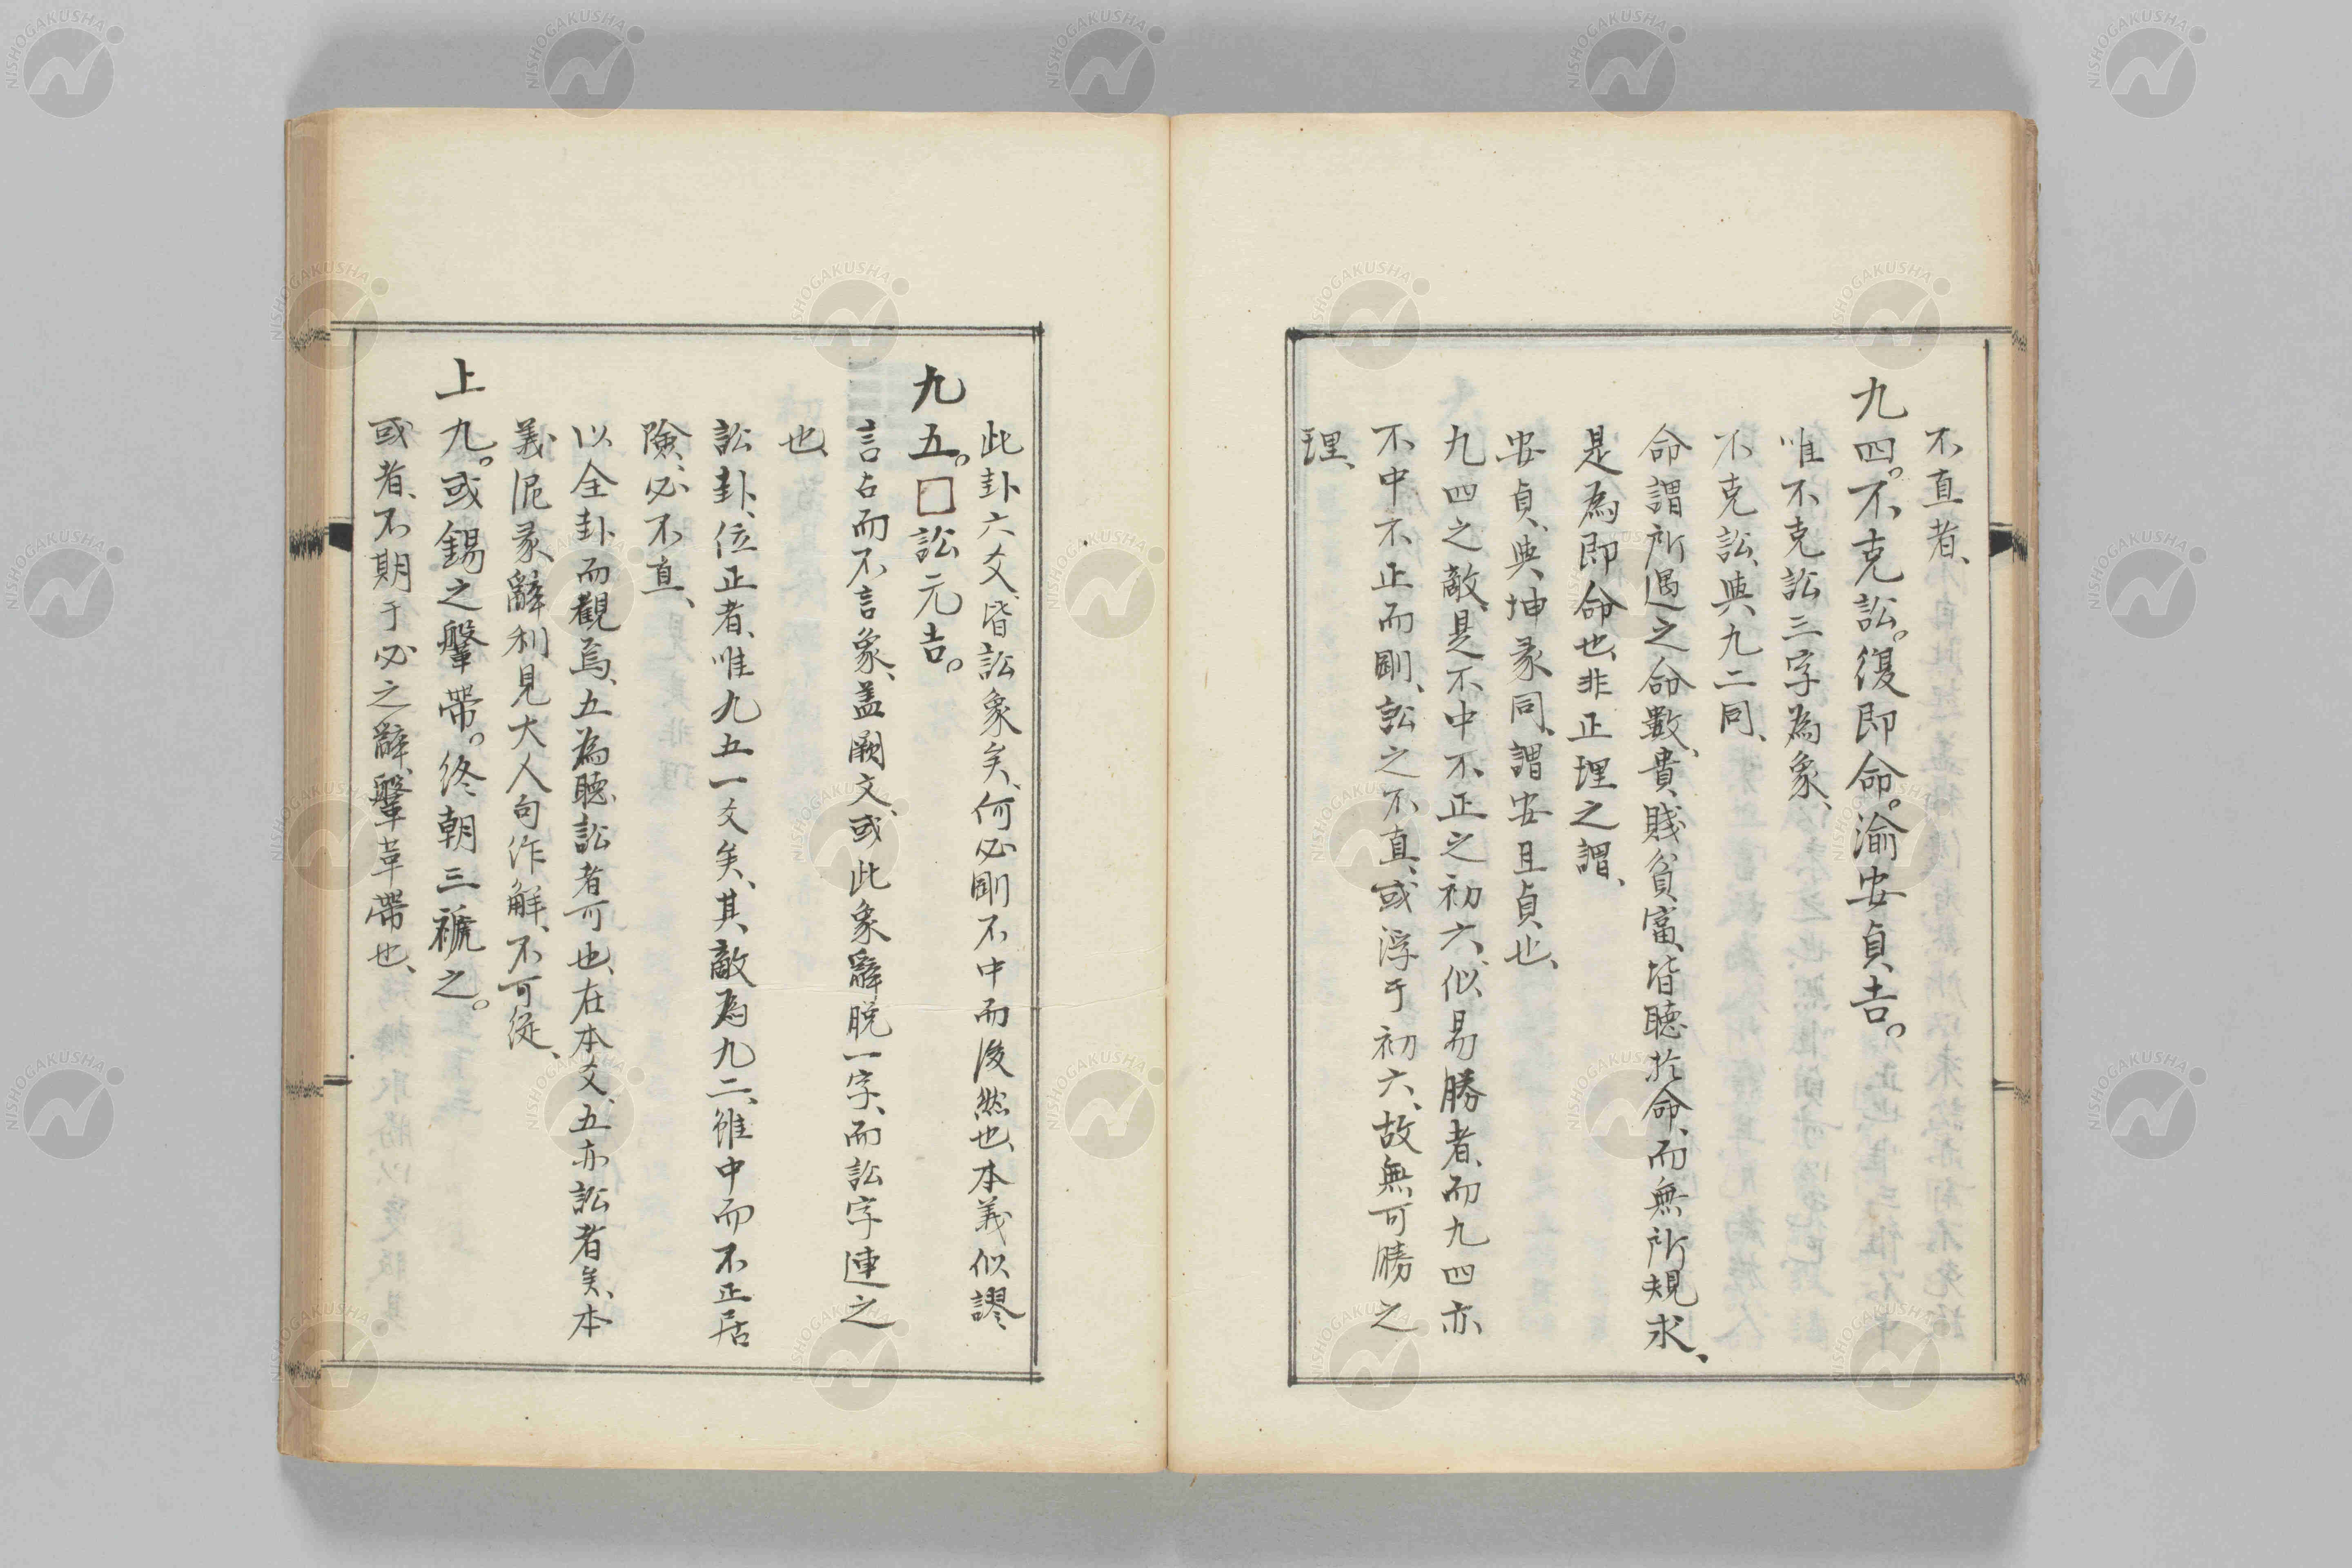 不直者、
九四。不克訟。復即命。渝安貞吉。
唯不克訟三字為象、
不克訟、與九二同、
命謂所遇之命數、貴賤貧富、皆聽於命、而無所規求、
是為即命也、非正理之謂、
安貞、與坤彖同、謂安且貞也、
九四之敵、是不中不正之初六、似易勝者、而九四亦
不中不正而剛、訟之不直、或浮于初六、故無可勝之
理、
此卦六爻、皆訟象矣、何必剛不中而後然也、本義似謬
九五。□訟元吉。
言占而不言象、蓋闕文、或此象辭脫一字、而訟字連之
也、
訟卦、位正者、唯九五一爻矣、其敵為九二、雖中而不正居
險、必不直、
以全卦而觀焉、五為聽訟者可也、在本爻、五亦訟者矣、本
義泥彖辭利見大人句作解、不可從、
上九。或錫之鞶帶。終朝三褫之。
或者、不期于必之辭、鞶革帶也、
NISHOGAKUSHA